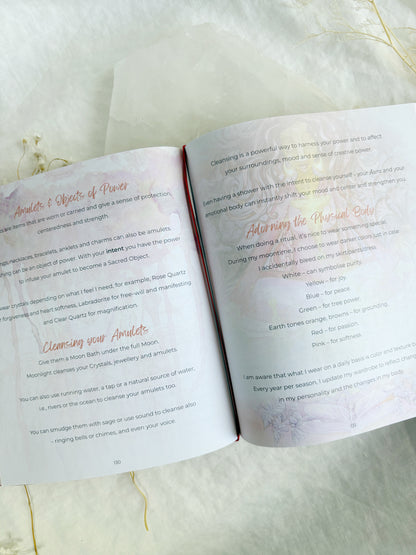 Amulets & Objects of Power
are items that are worn or carried and give a sense of protection,
centeredness and strength.
necklaces, bracelets, anklets and charms can also be amulets.
can be an object of power. With your intent you have the power
to infuse your amulet to become a Sacred Object.
wear crystals depending on what I feel I need, for example, Rose Quartz
forgiveness and heart softness, Labradorite for free-will and manifesting
and Clear Quartz for magnification.
Cleansing your Amulets
Give them a Moon Bath under the full Moon.
Moonlight cleanses your Crystals, jewellery and amulets.
You can also use running water, a tap or a natural source of water,
i.e., rivers or the ocean to cleanse your amulets too.
You can smudge them with sage or use sound to cleanse also
- ringing bells or chimes, and even your voice.
130
Cleansing is a powerful way to harness your power and to affect
your surroundings, mood and sense of creative power.
Even having a shower with the intent to cleanse yourself - your Aura and your
emotional body can instantly shift your mood and center and strengthen you.
Adorning the Physical Body
When doing a ritual, it's nice to wear something special.
During my moontime, I choose to wear darker colours in case
I accidentally bleed on my skirt/dress.
White - can symbolise purity.
Yellow - for joy
Blue - for peace
Green - for tree power.
Earth tones orange, browns - for grounding.
Red - for passion.
Pink - for softness.
I am aware that what I wear on a daily basis a color and texture
Every year per season, I update my wardrobe to reflect
in my personality and the changes in my body.
131